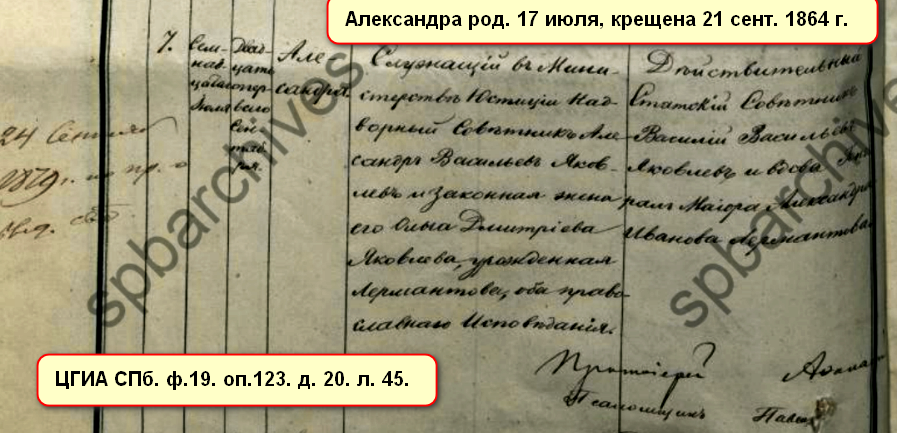 Александра род. 17 июля, крещена 21 сент. 1864 г.
7.
Сем-
над-
цатаго
Іюля
Двад-
цать
пер-
ваго
Сен-
тяб-
ря.
Але-
сандра.
Служащій въ Мини-
стерствѣ Юстиціи Над-
ворный Совѣтникъ Але-
сандръ Васильевъ Яков-
левъ и законная жена
его Ольга Дмитріева
Яковлева, урожденная
Лермантова, оба право-
славнаго Исповѣданія.
Дѣйствительный
Статскій Совѣтникъ
Василій Васильевъ
Яковлевъ и вдова
ралъ Маіора Александра
Иванова Лермантова
24 Сентября
1879 г.
Протоіерей
Псаломщикъ
spbarchives
spbarchives
ЦГИА СПб. ф.19. оп.123. д. 20. л. 45.